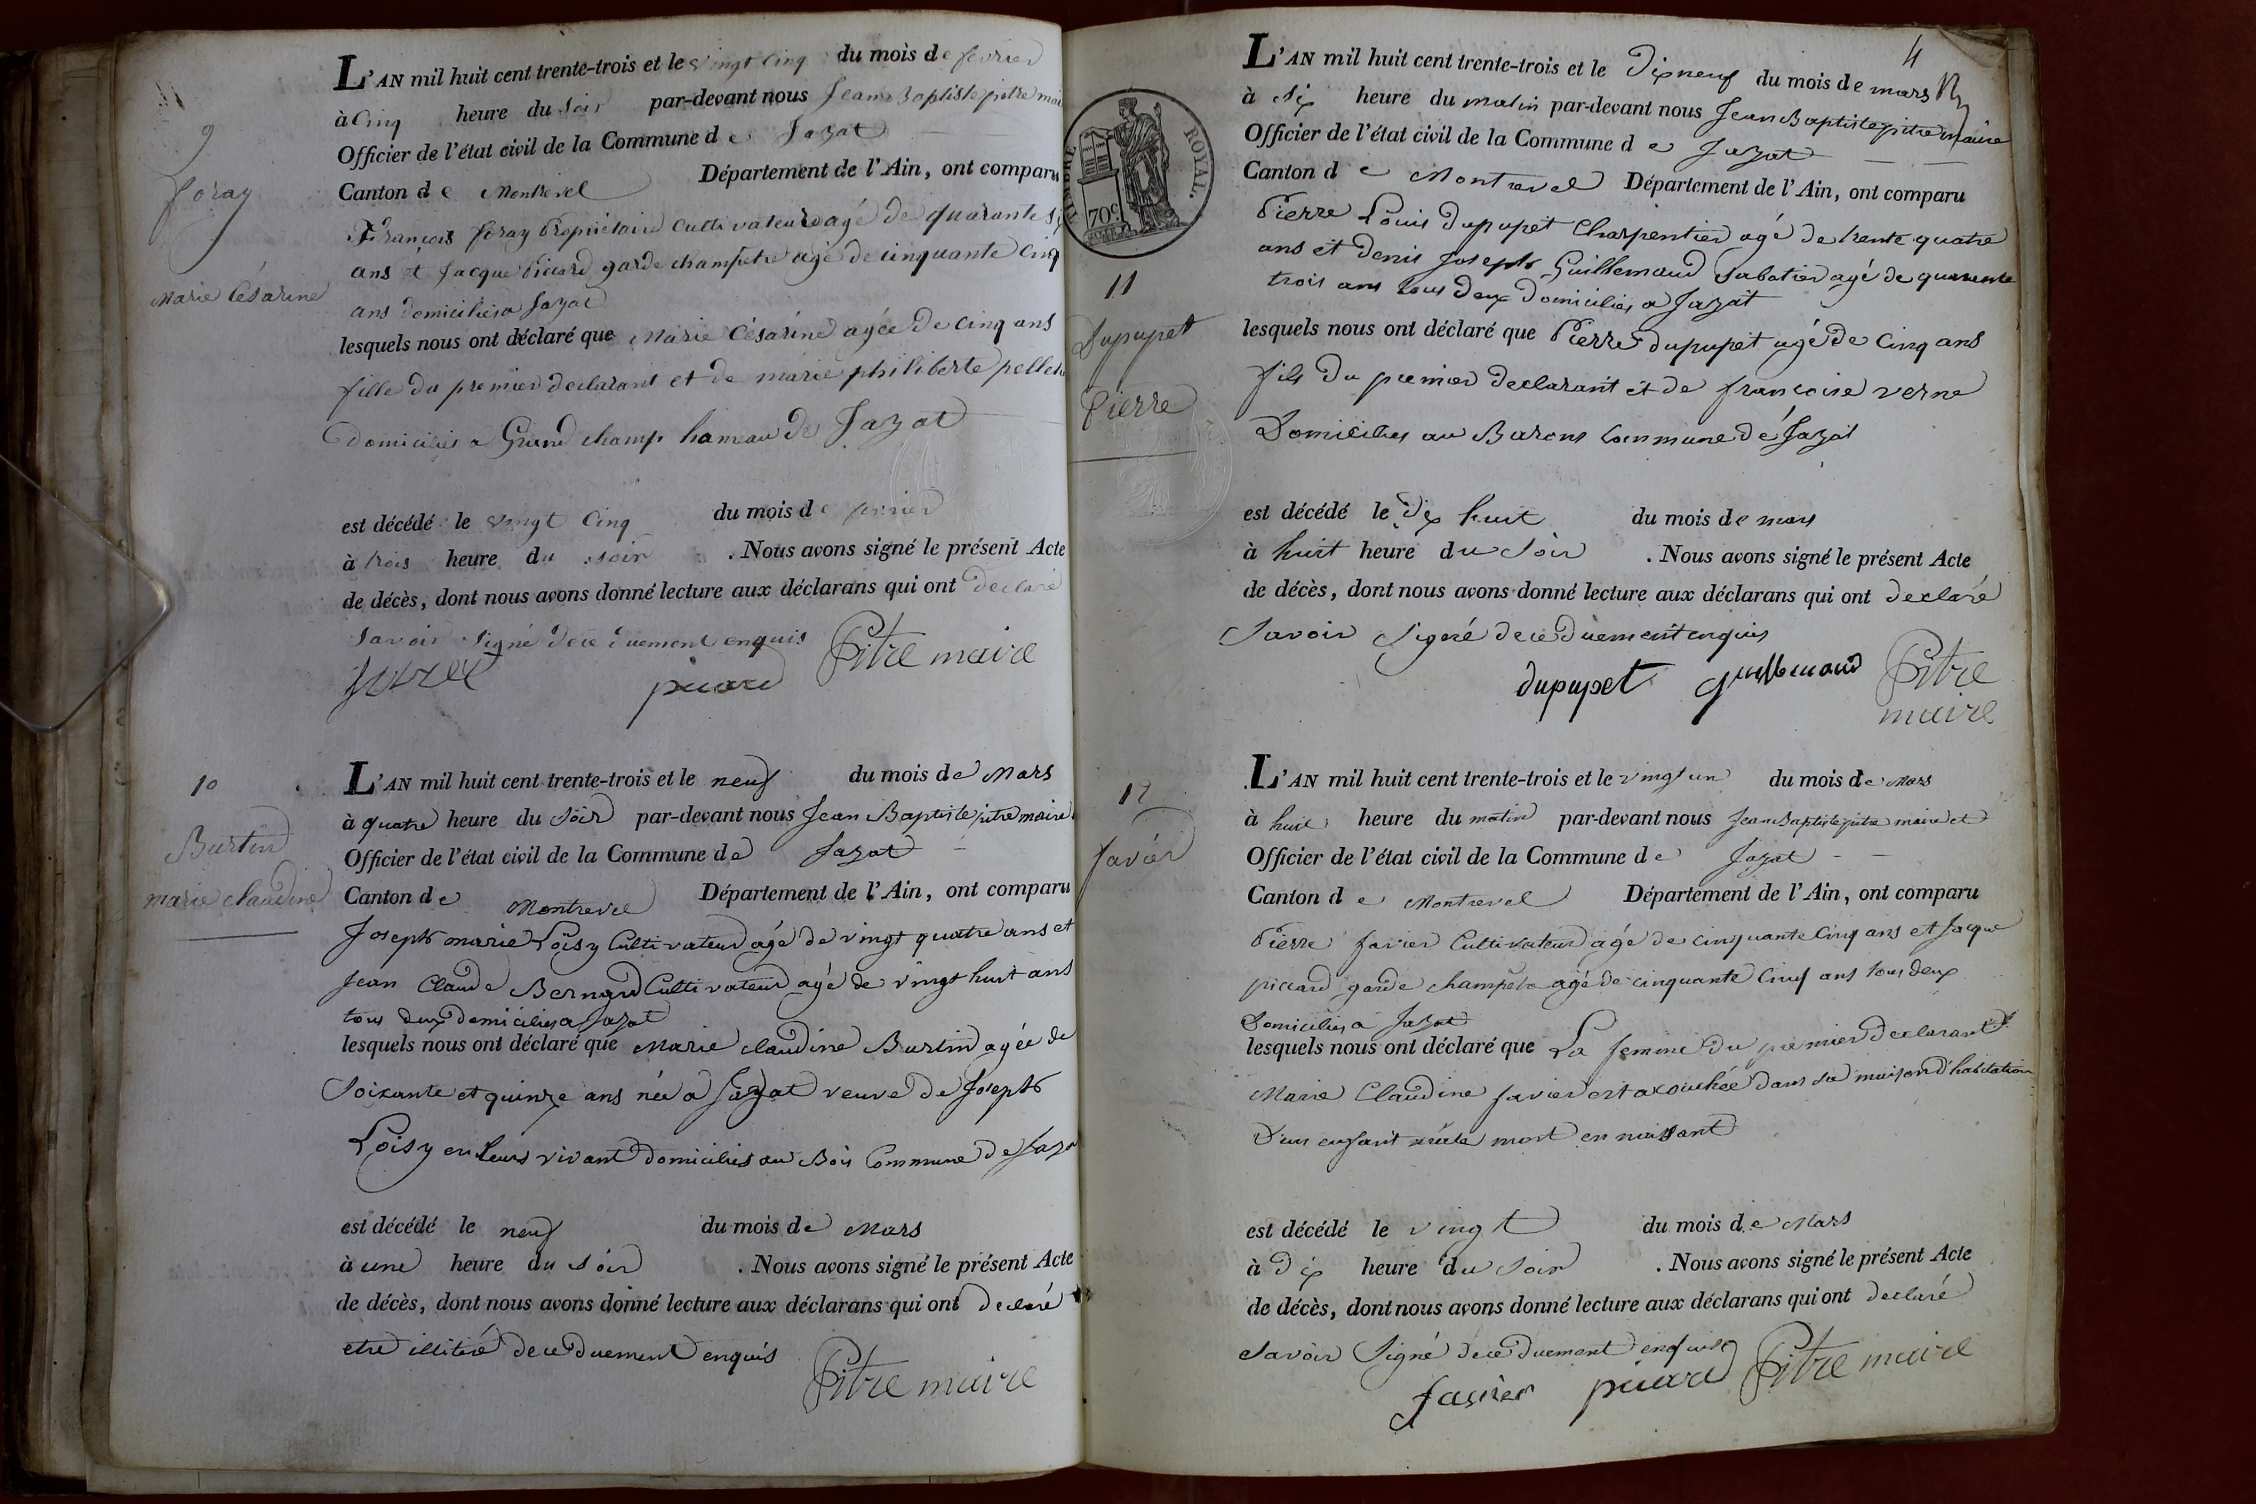 9
foray
Marie Césarine
L'AN mil huit cent trente-trois et le vingt cinq du mois de fevrier
à cinq heure du soir par-devant nous Jean Baptiste pitre mai
Officier de l'état civil de la Commune de Jazat
Canton de Montrevel Département de l'Ain, ont comparu
François foray Propriétaire Cultivateur agé de quarante
ans et Jacque Picard garde champetre agé de cinquante cinq
ans domiciliés a Jazat
lesquels nous ont déclaré que Marie Césarine agée de cinq ans
fille du premier declarant et de marie philiberte
domiciliés a Grand champ hameau de Jazat
est décédé le vingt cinq du mois de fevrier
à trois heure du soir . Nous avons signé le présent Acte
de décès, dont nous avons donné lecture aux déclarans qui ont declaré
Savoir Signé de ce duement enquis
picard Pitre maire
10
Burtin
marie claudine
L'AN mil huit cent trente-trois et le neuf du mois de Mars
à quatre heure du Soir par-devant nous Jean Baptiste pitre maire
Officier de l'état civil de la Commune de Jazat
Canton de Montrevel Département de l'Ain, ont comparu
Joseph marie Loisy Cultivateur agé de vingt quatre ans et
Jean Claude Bernard Cultivateur agé de vingt huit ans
tous deux domiciliés a Jazat
lesquels nous ont déclaré que Marie claudine Burtin agée de
Soixante et quinze ans née a Jazat veuve de Joseph
Loisy en leurs vivant domiciliés au Bois Commune de Jaza
est décédé le neuf du mois de Mars
à une heure du Soir . Nous avons signé le présent Acte
de décès, dont nous avons donné lecture aux déclarans qui ont declaré
etre illitéré de ce duement enquis
Pitre maire
4
TIMBRE ROYAL.
70c
11
Dupupet
Pierre
L'AN mil huit cent trente-trois et le Dix neuf du mois de mars
à six heure du matin par-devant nous Jean Baptiste pitre maire
Officier de l'état civil de la Commune de Jazat
Canton de Montrevel Département de l'Ain, ont comparu
Pierre Louis dupupet Charpentier agé de trente quatre
ans et denis Joseph Guillemaud Sabotier agé de quarente
trois ans tous deux Domiciliés a Jazat
lesquels nous ont déclaré que Pierre dupupet agé de Cinq ans
fils du premier declarant et de francoise verne
Domiciliés au Barons Commune de Jazat
est décédé le dix huit du mois de mars
à huit heure du Soir . Nous avons signé le présent Acte
de décès, dont nous avons donné lecture aux déclarans qui ont declaré
Savoir Signé de ce duement enquis
dupupet guillemaud Pitre
maire
12
favier
L'AN mil huit cent trente-trois et le vingt un du mois de Mars
à huit heure du matin par-devant nous Jean Baptiste pitre maire et
Officier de l'état civil de la Commune de Jazat
Canton de Montrevel Département de l'Ain, ont comparu
Pierre favier Cultivateur agé de cinquante Cinq ans et Jacque
piccard garde champetre agé de cinquante Cinq ans tous deux
Domiciliés a Jazat
lesquels nous ont déclaré que La femme du premier declarant
Marie Claudine favier est acouchée dans sa maison d'habitation
D'un enfant mort en naissant
est décédé le vingt du mois de Mars
à Dix heure du Soir . Nous avons signé le présent Acte
de décès, dont nous avons donné lecture aux déclarans qui ont declaré
Savoir Signé de ce duement enquis
favier picard Pitre maire